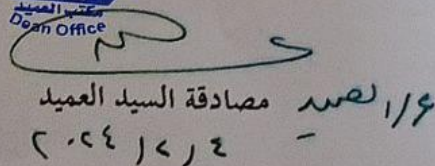 مكتب العميد
Dean Office
مصادقة السيد العميد
٢٠٢٤/٢/٤